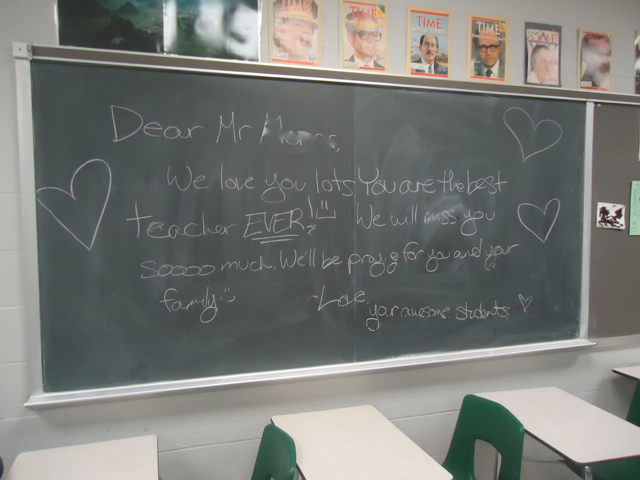 TIME
TIME
TIME
TIME
Dear Mr
We love you lots You are the best
teacher EVER! We will miss you
soooo much. We'll be prayg for you and your
family
Love
your awesome students